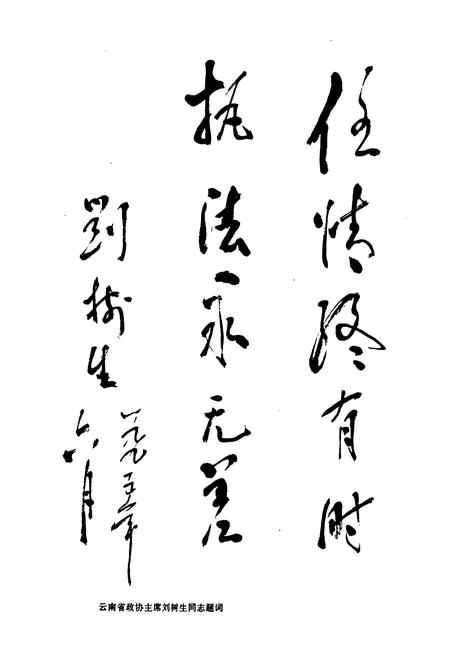 任情终有时
执法永无差
劉樹生
一九八五年
六月
云南省政协主席刘树生同志题词